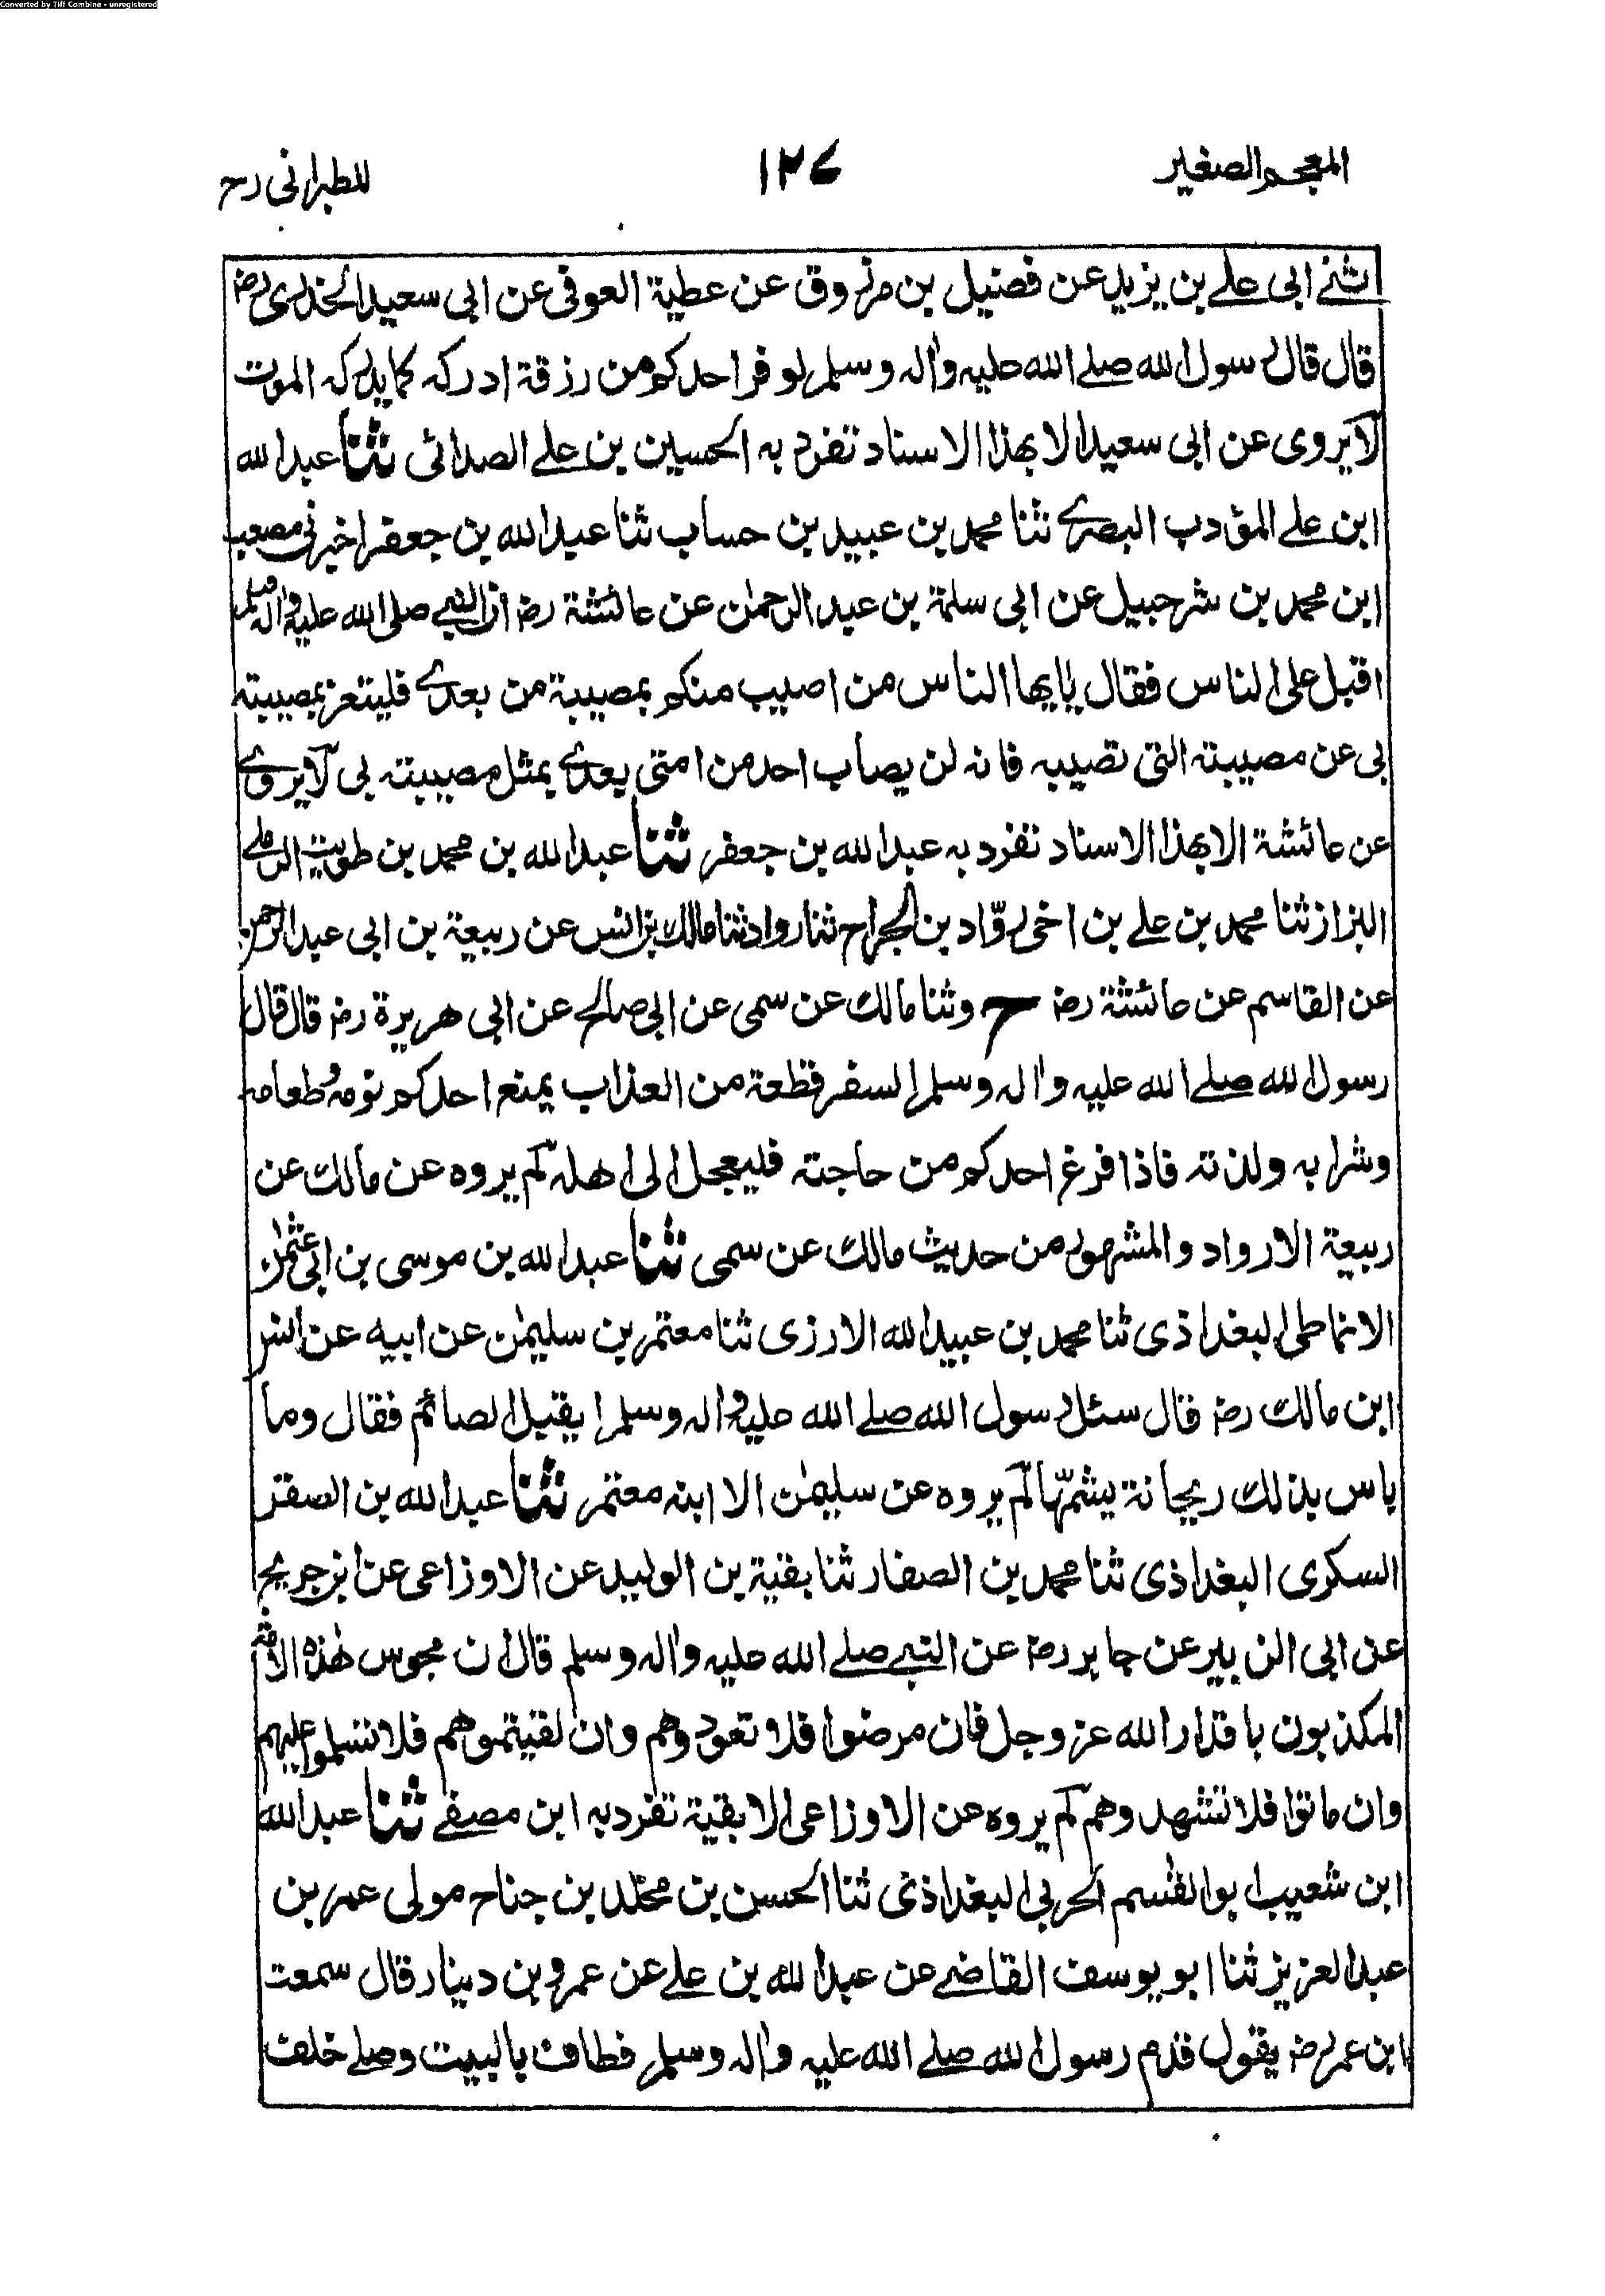 Converted by Tiff Combine - unregistered
المعجم الصغير
١٢٤
للطبرانی رح
ثنے ابی علے بن یزید عن فضیل بن مرزوق عن عطیة العوفی عن ابی سعید الخدری رض
قال قال رسول الله صلے الله علیه واٰله وسلم لو فر احدکم من رزقة ادرکه کما یدرکه الموت
لا یروی عن ابی سعید الا بهذا الاسناد تفرد به الحسین بن علے الصدائی ثنا عبد الله
ابن علے المؤدب البصرے ثنا محمد بن عبید بن حساب ثنا عبد الله بن جعفر اخبرنی مصعب
ابن محمد بن شرحبیل عن ابی سلمة بن عبد الرحمٰن عن عائشة رض ان النبے صلی الله علیه واٰله وسلم
اقبل علی الناس فقال یا ایها الناس من اصیب منکم بمصیبة من بعدے فلیتعز بمصیبته
بی عن مصیبته التی تصیبه فانه لن یصاب احد من امتی بعدے بمثل مصیبته بی لا یروے
عن عائشة الا بهذا الاسناد تفرد به عبد الله بن جعفر ثنا عبد الله بن محمد بن طویت الرملے
البزاز ثنا محمد بن علے بن اخی روّاد بن الجراح ثنا رواد ثنا مالك بن انس عن ربیعة بن ابی عبد الرحمن
عن القاسم عن عائشة رض ح وثنا مالك عن سمی عن ابی صالح عن ابی هریرة رض قال قال
رسول الله صلے الله علیه واٰله وسلم السفر قطعة من العذاب یمنع احدکم نومه وطعامه
وشرابه ولذته فاذا فرغ احدکم من حاجته فلیعجل الی اهله لم یروه عن مالك عن
ربیعة الا رواد والمشهور من حدیث مالك عن سمی ثنا عبد الله بن موسی بن ابی عثمٰن
الانماطی البغداذی ثنا محمد بن عبید الله الارزی ثنا معتمر بن سلیمٰن عن ابیه عن انس
ابن مالك رض قال سئل رسول الله صلے الله علیه واٰله وسلم ایقبل الصائم فقال وما
باس بذلك ریحانة یشمّها لم یروه عن سلیمٰن الا ابنه معتمر ثنا عبد الله بن الصقر
السکری البغداذی ثنا محمد بن الصفار ثنا بقیة بن الولید عن الاوزاعی عن ابن جریج
عن ابی الزبیر عن جابر رض عن النبے صلے الله علیه واٰله وسلم قال ان مجوس هٰذه الامة
المکذبون باقدار الله عز وجل فان مرضوا فلا تعودوهم وان لقیتموهم فلا تسلموا علیهم
وان ماتوا فلا تشهدوهم لم یروه عن الاوزاعی الا بقیة تفرد به ابن مصفے ثنا عبد الله
ابن شعیب ابو القٰسم الحربی البغداذی ثنا الحسن بن محمد بن جناح مولی عمر بن
عبد العزیز ثنا ابو یوسف القاضے عن عبد الله بن علے عن عمرو بن دینار قال سمعت
ابن عمر رض یقول قدم رسول الله صلے الله علیه واٰله وسلم فطاف بالبیت وصلے خلف